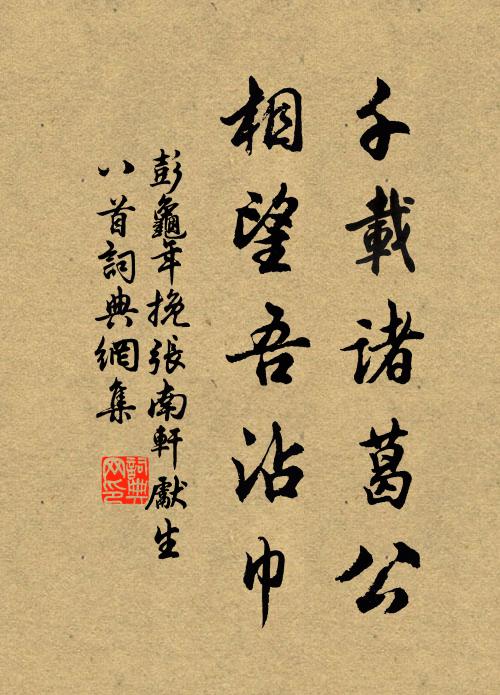 千載諸葛公
相望吾沾巾
彭龜年挽張南軒獻生
八首詞典網集
詞典网印